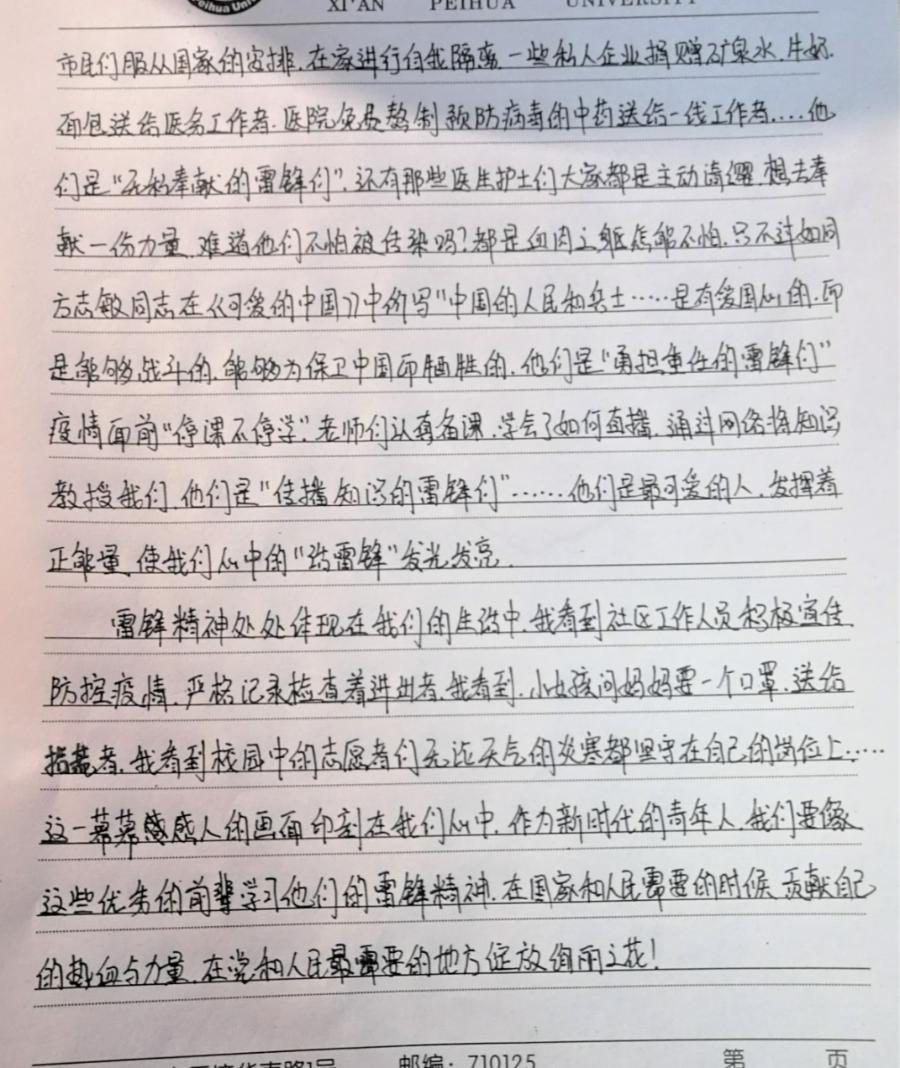 Peihua Uni
XI'AN PEIHUA UNIVERSITY
市民们服从国家的安排，在家进行自我隔离，一些私人企业捐赠矿泉水、牛奶、
面包送给医务工作者，医院免费熬制预防病毒的中药送给一线工作者……他
们是“无私奉献的雷锋们”，还有那些医生护士们大家都是主动请缨，想去奉
献一份力量，难道他们不怕被传染吗？都是血肉之躯怎能不怕，只不过如同
方志敏同志在《可爱的中国》中所写“中国的人民和兵士……是有爱国心的，即
是能够战斗的，能够为保卫中国而牺牲的，他们是“勇担重任的雷锋们”
疫情面前“停课不停学”，老师们认真备课，学会了如何直播，通过网络将知识
教授我们，他们是“传播知识的雷锋们”……他们是最可爱的人，发挥着
正能量，使我们心中的“活雷锋”发光发亮。
雷锋精神处处体现在我们的生活中，我看到社区工作人员积极宣传
防控疫情，严格记录检查着进出者，我看到，小女孩问妈妈要一个口罩，送给
拾荒者，我看到校园中的志愿者们无论天气的炎寒都坚守在自己的岗位上……
这一幕幕感人的画面印刻在我们心中，作为新时代的青年人，我们要像
这些优秀的前辈学习他们的雷锋精神，在国家和人民需要的时候，贡献自己
的热血与力量，在党和人民最需要的地方绽放绚丽之花！
邮编：710125 第 页